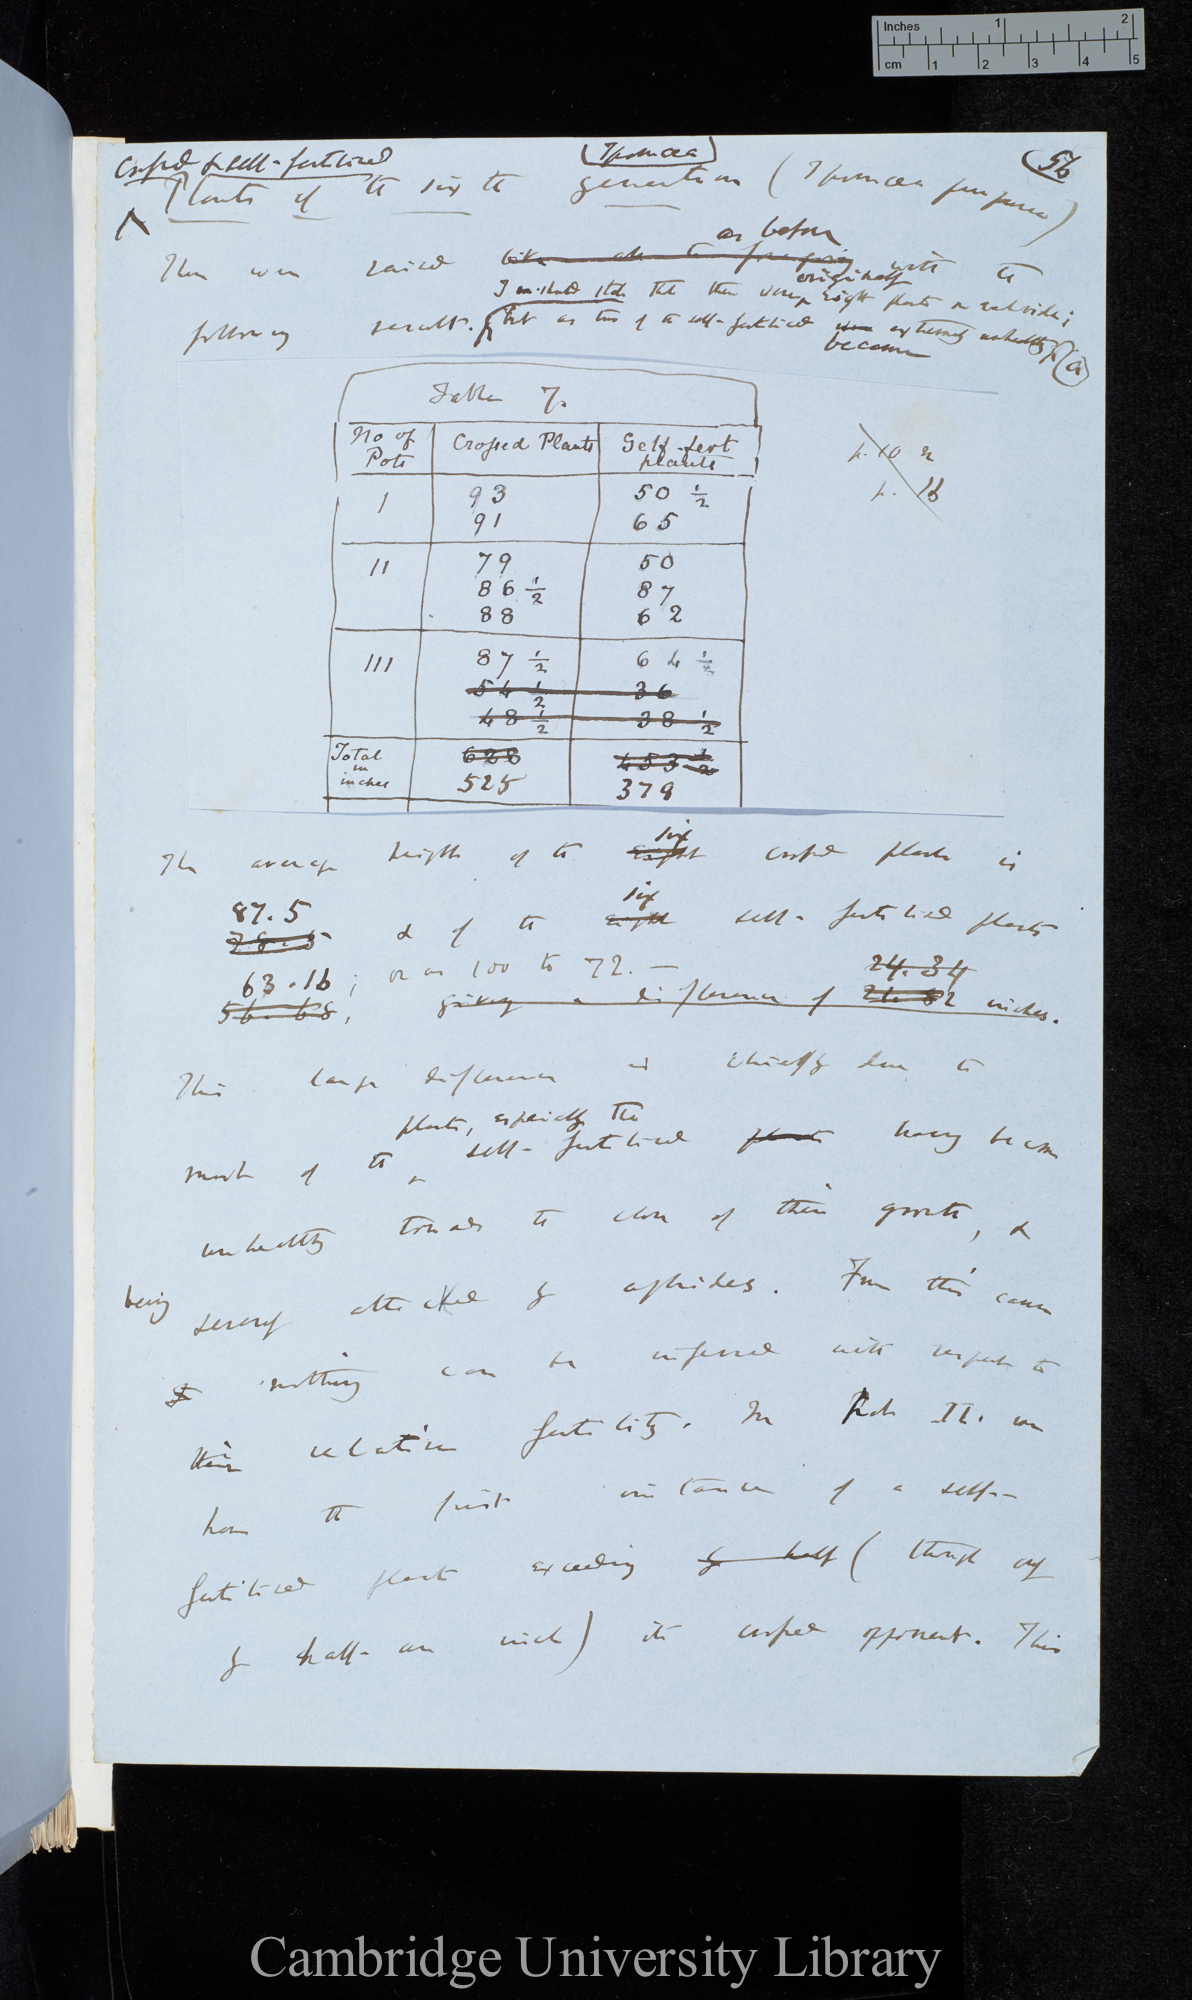 Inches 1 2
cm 1 2 3 4 5
Crossed & self-fertilised (Ipomoea) 56
Plants of the sixth generation (Ipomoea purpurea)
as before
These were raised with the
originally
I should state that there were eight plants on each side;
following result. but as two of the self-fertilised were extremely unhealthy (a)
became
Table 7.
No of Pots Crossed Plants Self-fert plants
I 93 50 ½
91 65
II 79 50
86 ½ 87
88 62
III 87 ½ 64 ½
54 ½ 36
48 ½ 38 ½
Total in inches 628 453 ½
525 379
p. 10 a
p. 16
six
The average height of the eight crossed plants is
87.5 six
78.5 & of the eight self-fertilised plants
63.16; or as 100 to 72. — 24.34
56.68, giving a difference of 21.82 inches.
This large difference is chiefly due to
plants, especially the
most of the self-fertilised plants having become
unhealthy towards the close of their growth, &
being severely attacked by aphides. From this cause
nothing can be inferred with respect to
their relative fertility. In Pot II. we
have the first instance of a self-
fertilised plant exceeding by half (though only
by half-an inch) its crossed opponent. This
Cambridge University Library